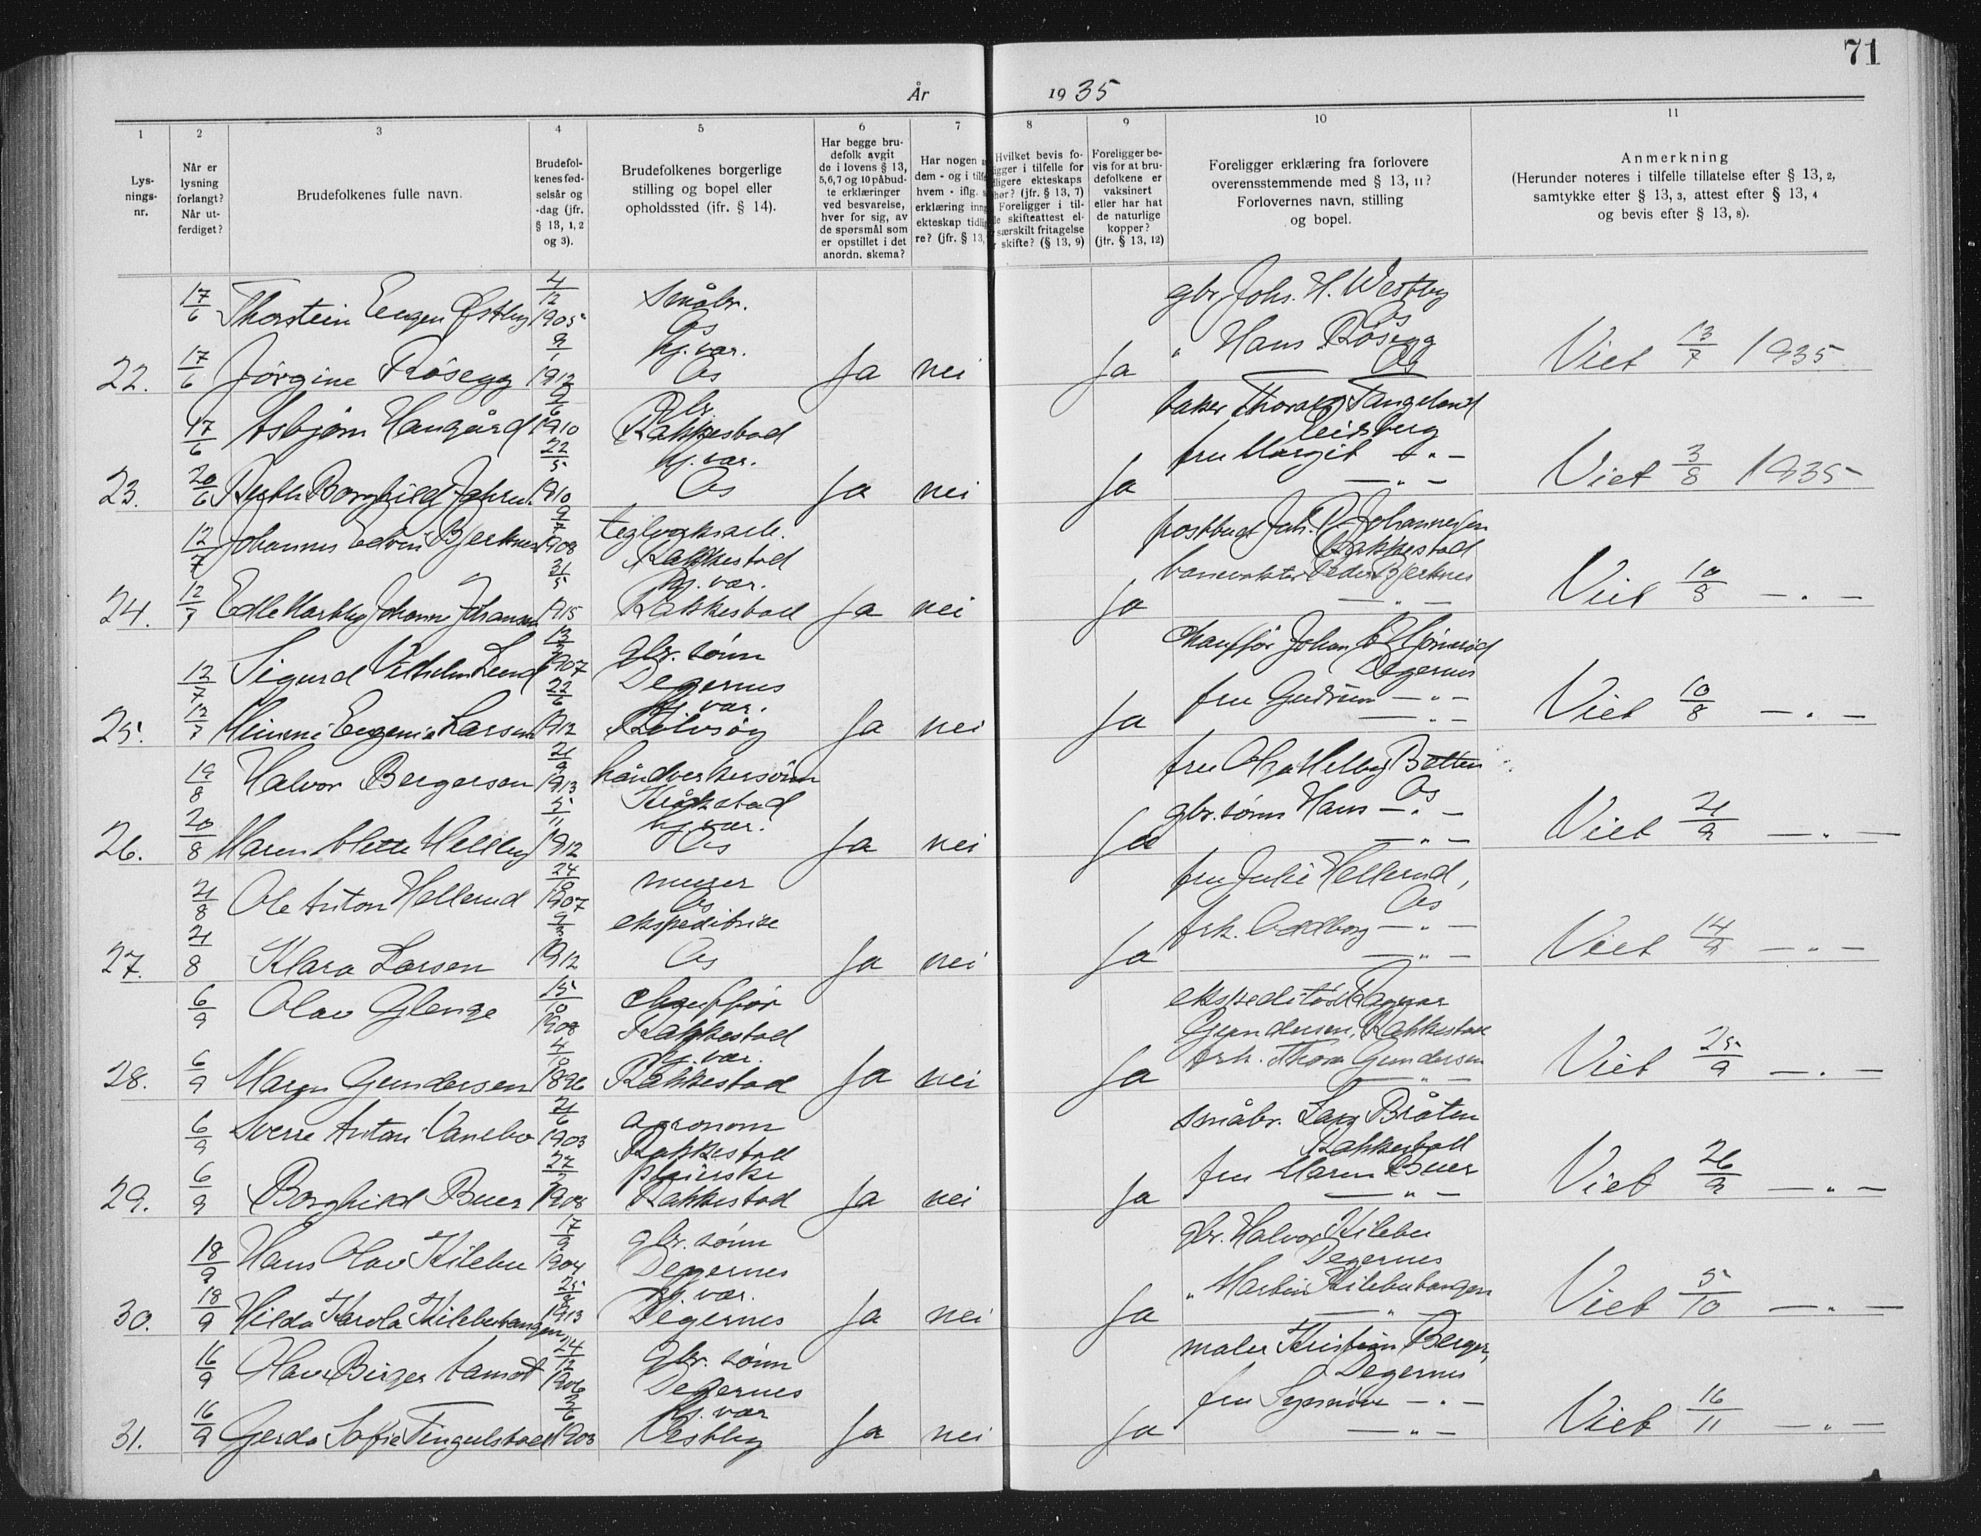 71
År 1935
1 2 3 4 5 6 7 8 9 10 11
Lys-
nings-
nr.
Når er
lysning
forlangt?
Når ut-
ferdiget?
Brudefolkenes fulle navn.
Brudefol-
kenes fød-
selsår og
-dag (jfr.
§ 13, 1, 2
og 3).
Brudefolkenes borgerlige
stilling og bopel eller
opholdssted (ifr. § 14).
Har begge bru-
defolk avgit
de i lovens § 13,
5,6,7 og 10 påbud-
te erklæringer
ved besvarelse,
hver for sig, av
de spørsmål som
er opstillet i det
anordn. skema?
Har nogen
dem - og i
hvem - iflg.
erklæring
ekteskap
re? (jfr. § 13,
Hvilket bevis fo-
ligger i tilfelle for
ekteskaps
(jfr. § 13, 7)
Foreligger i til-
skifteattest el-
særskilt fritagelse
skifte? (§ 13, 9)
Foreligger be-
vis for at bru-
defolkene er
vaksinert
eller har hat
de naturlige
kopper?
(jfr. § 13, 12)
Foreligger erklæring fra forlovere
overensstemmende med § 13, 11?
Forlovernes navn, stilling
og bopel.
Anmerkning
(Herunder noteres i tilfelle tillatelse efter § 13, 2,
samtykke efter § 13, 3, attest efter § 13, 4
og bevis efter § 13, 8).
17/6 Thorstein Eugen Østby 4/12 1905 småbr. Ås gbr. Johs. H. Westby Ås
22. 17/6 Jørgine Røsegg 9/1 1912 hj. vær. Ås Ja nei Ja " Hans Røsegg Ås Viet 13/7 1935.
17/6 Asbjørn Haugård 1910 Rakkestad baker Tangeland
23. 20/6 Ruth Borghild 22/5 1910 hj. vær. Ås Ja nei Ja fru Margit — " — Viet 3/8 1935
12/7 Johannes Edvin Bjerknes 9/7 1908 teglverksarb. Rakkestad postbud Joh. Johannesen Rakkestad
24. 12/7 Edle Johanne Johansen 31/5 1915 hj. vær. Rakkestad Ja nei Ja Peder Bjerknes — " — Viet 10/8 — " —
12/7 Sigurd Vilhelm Lund 1907 gbr. sønn Degernes chauffør Johan Degernes
25. 12/7 Minni Eugenie Larsen 22/6 1912 hj. vær. Rolvsøy Ja nei Ja fru Gudrun — " — Viet 10/8 — " —
19/8 Halvor Bergersen 1913 håndverkersønn Kråkstad fru Olga Melby Botten Ås
26. 20/8 Maren Mette Melby 5/11 1912 hj. vær. Ås Ja nei Ja gbr. sønn Hans — " — Viet 21/9 — " —
21/8 Ole Anton Hellerud 24/10 1907 murer Ås fru Julie Hellerud, Ås
27. 21/8 Klara Larsen 1912 ekspeditrise Ås Ja nei Ja frk. — " — Viet 14/9 — " —
6/9 Olav Glenge 15/10 1908 chauffør Rakkestad ekspeditør Ragnar Gundersen, Rakkestad
28. 6/9 Maren Gundersen 4/10 1896 hj. vær. Rakkestad Ja nei Ja frk. Thora Gundersen — " — Viet 25/9 — " —
6/9 Sverre Anton Vanebo 21/6 1903 agronom Rakkestad småbr. Lars Bråten Rakkestad
29. 6/9 Borghild Buer 1908 pleierske Rakkestad Ja nei Ja fru Maren Buer — " — Viet 26/9 — " —
18/9 Hans Olav Kilebu 17/9 1904 gbr. sønn Degernes gbr. Halvor Kilebu Degernes
30. 18/9 Hilda Karola Kilebuhaugen 1913 hj. vær. Degernes Ja nei Ja " Martin Kilebuhaugen — " — Viet 5/10 — " —
16/9 Olav Birger 24/12 1906 gbr. sønn Degernes maler Kristian Berger, Degernes
31. 16/9 Gerda Sofie Tingulstad 1903 hj. vær Vestby Ja nei Ja fru Synnøve — " — Viet 16/11 — " —